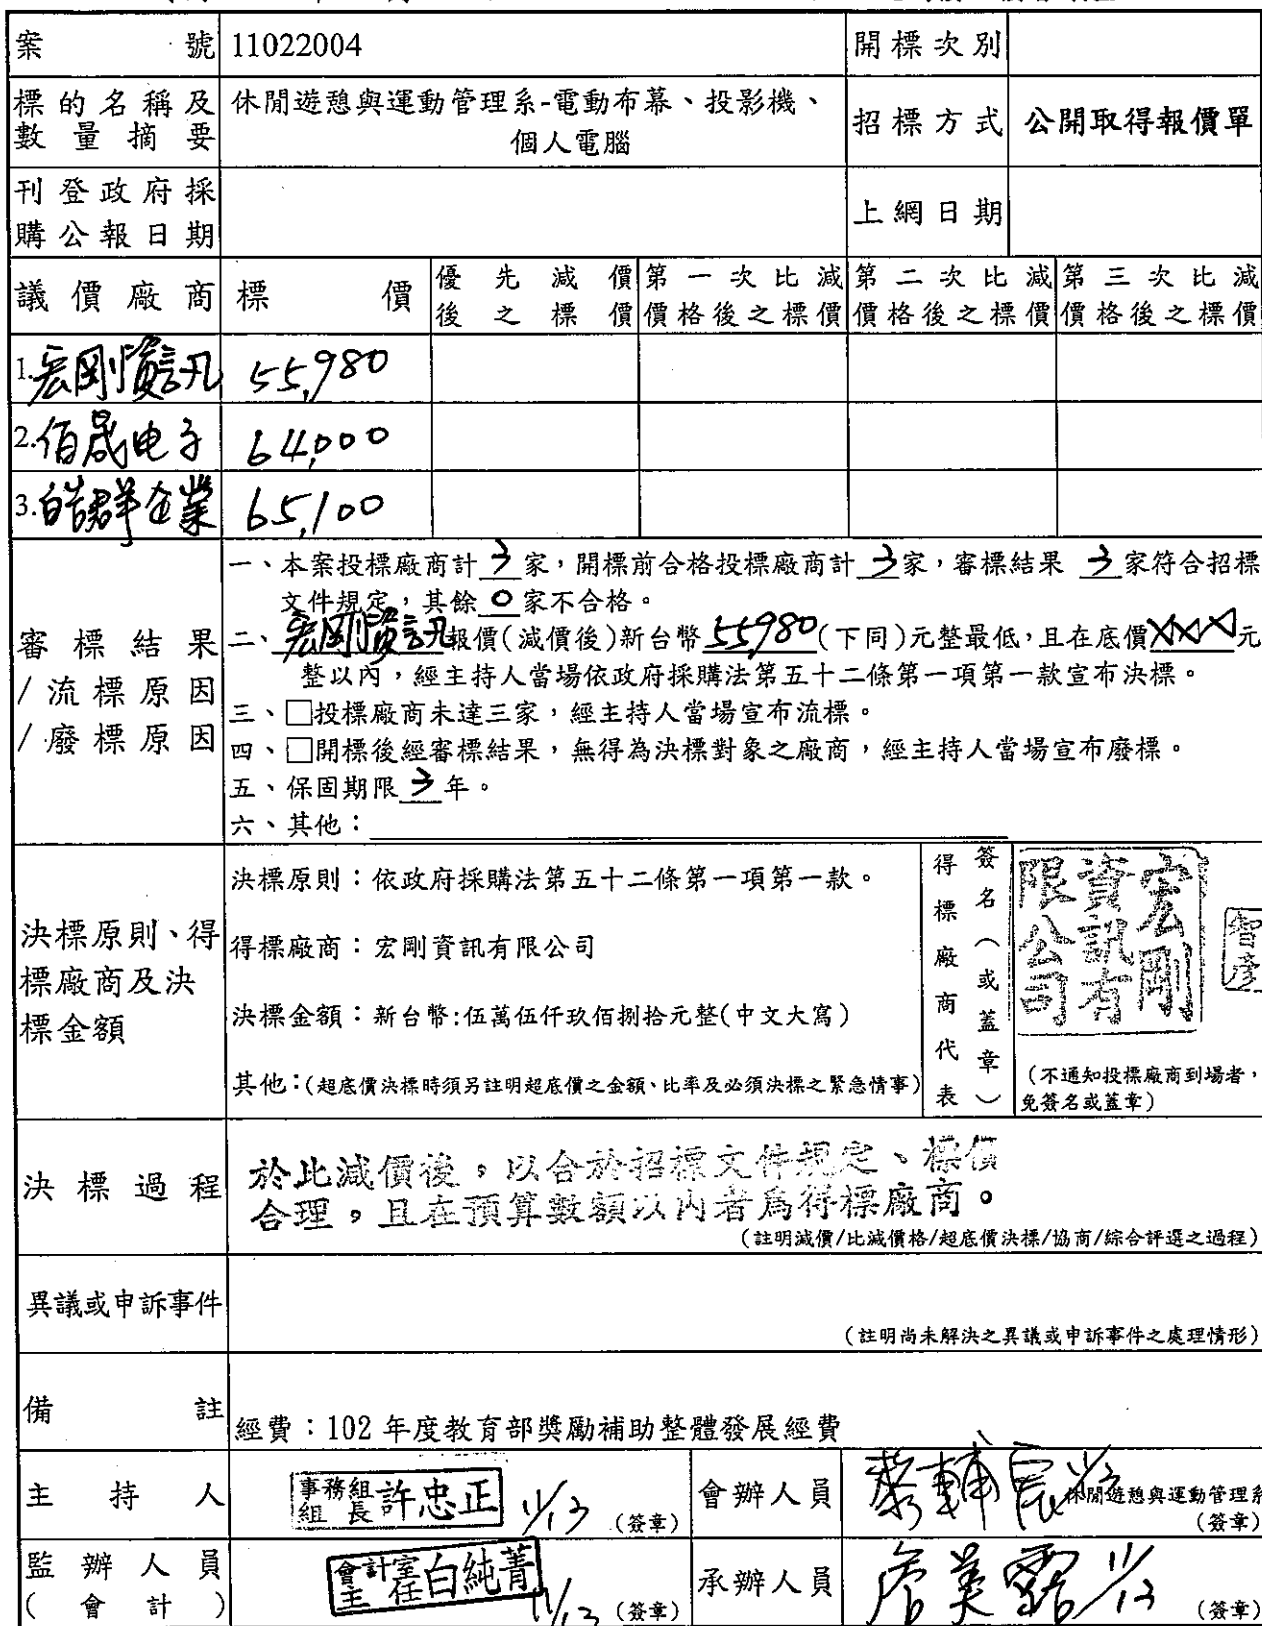 案號 11022004 開標次別
標的名稱及 休閒遊憩與運動管理系-電動布幕、投影機、
數量摘要 個人電腦 招標方式 公開取得報價單
刊登政府採
購公報日期 上網日期
議價廠商 標價 優先減價 第一次比減 第二次比減 第三次比減
後之標價 價格後之標價 價格後之標價 價格後之標價
1.宏剛資訊 55,980
2.佰晟电子 64,000
3.皓群企業 65,100
審標結果
/流標原因
/廢標原因
一、本案投標廠商計 3 家,開標前合格投標廠商計 3 家,審標結果 3 家符合招標
文件規定,其餘 0 家不合格。
二、宏剛資訊報價(減價後)新台幣 55,980 (下同)元整最低,且在底價XXX元
整以內,經主持人當場依政府採購法第五十二條第一項第一款宣布決標。
三、□投標廠商未達三家,經主持人當場宣布流標。
四、□開標後經審標結果,無得為決標對象之廠商,經主持人當場宣布廢標。
五、保固期限 3 年。
六、其他:
決標原則、得
標廠商及決
標金額
決標原則:依政府採購法第五十二條第一項第一款。
得標廠商:宏剛資訊有限公司
決標金額:新台幣:伍萬伍仟玖佰捌拾元整(中文大寫)
其他:(超底價決標時須另註明超底價之金額、比率及必須決標之緊急情事)
得標廠商代表
簽名(或蓋章)
宏剛
資訊有
限公司
智彥
(不通知投標廠商到場者,
免簽名或蓋章)
決標過程
於此減價後,以合於招標文件規定、標價
合理,且在預算數額以內者為得標廠商。
(註明減價/比減價格/超底價決標/協商/綜合評選之過程)
異議或申訴事件
(註明尚未解決之異議或申訴事件之處理情形)
備註 經費:102 年度教育部獎勵補助整體發展經費
主持人 事務組組長 許忠正 11/13 (簽章) 會辦人員 11/13 休閒遊憩與運動管理系
(簽章)
監辦人員
(會計) 會計室主任 白純菁 11/13 (簽章) 承辦人員 11/13 (簽章)